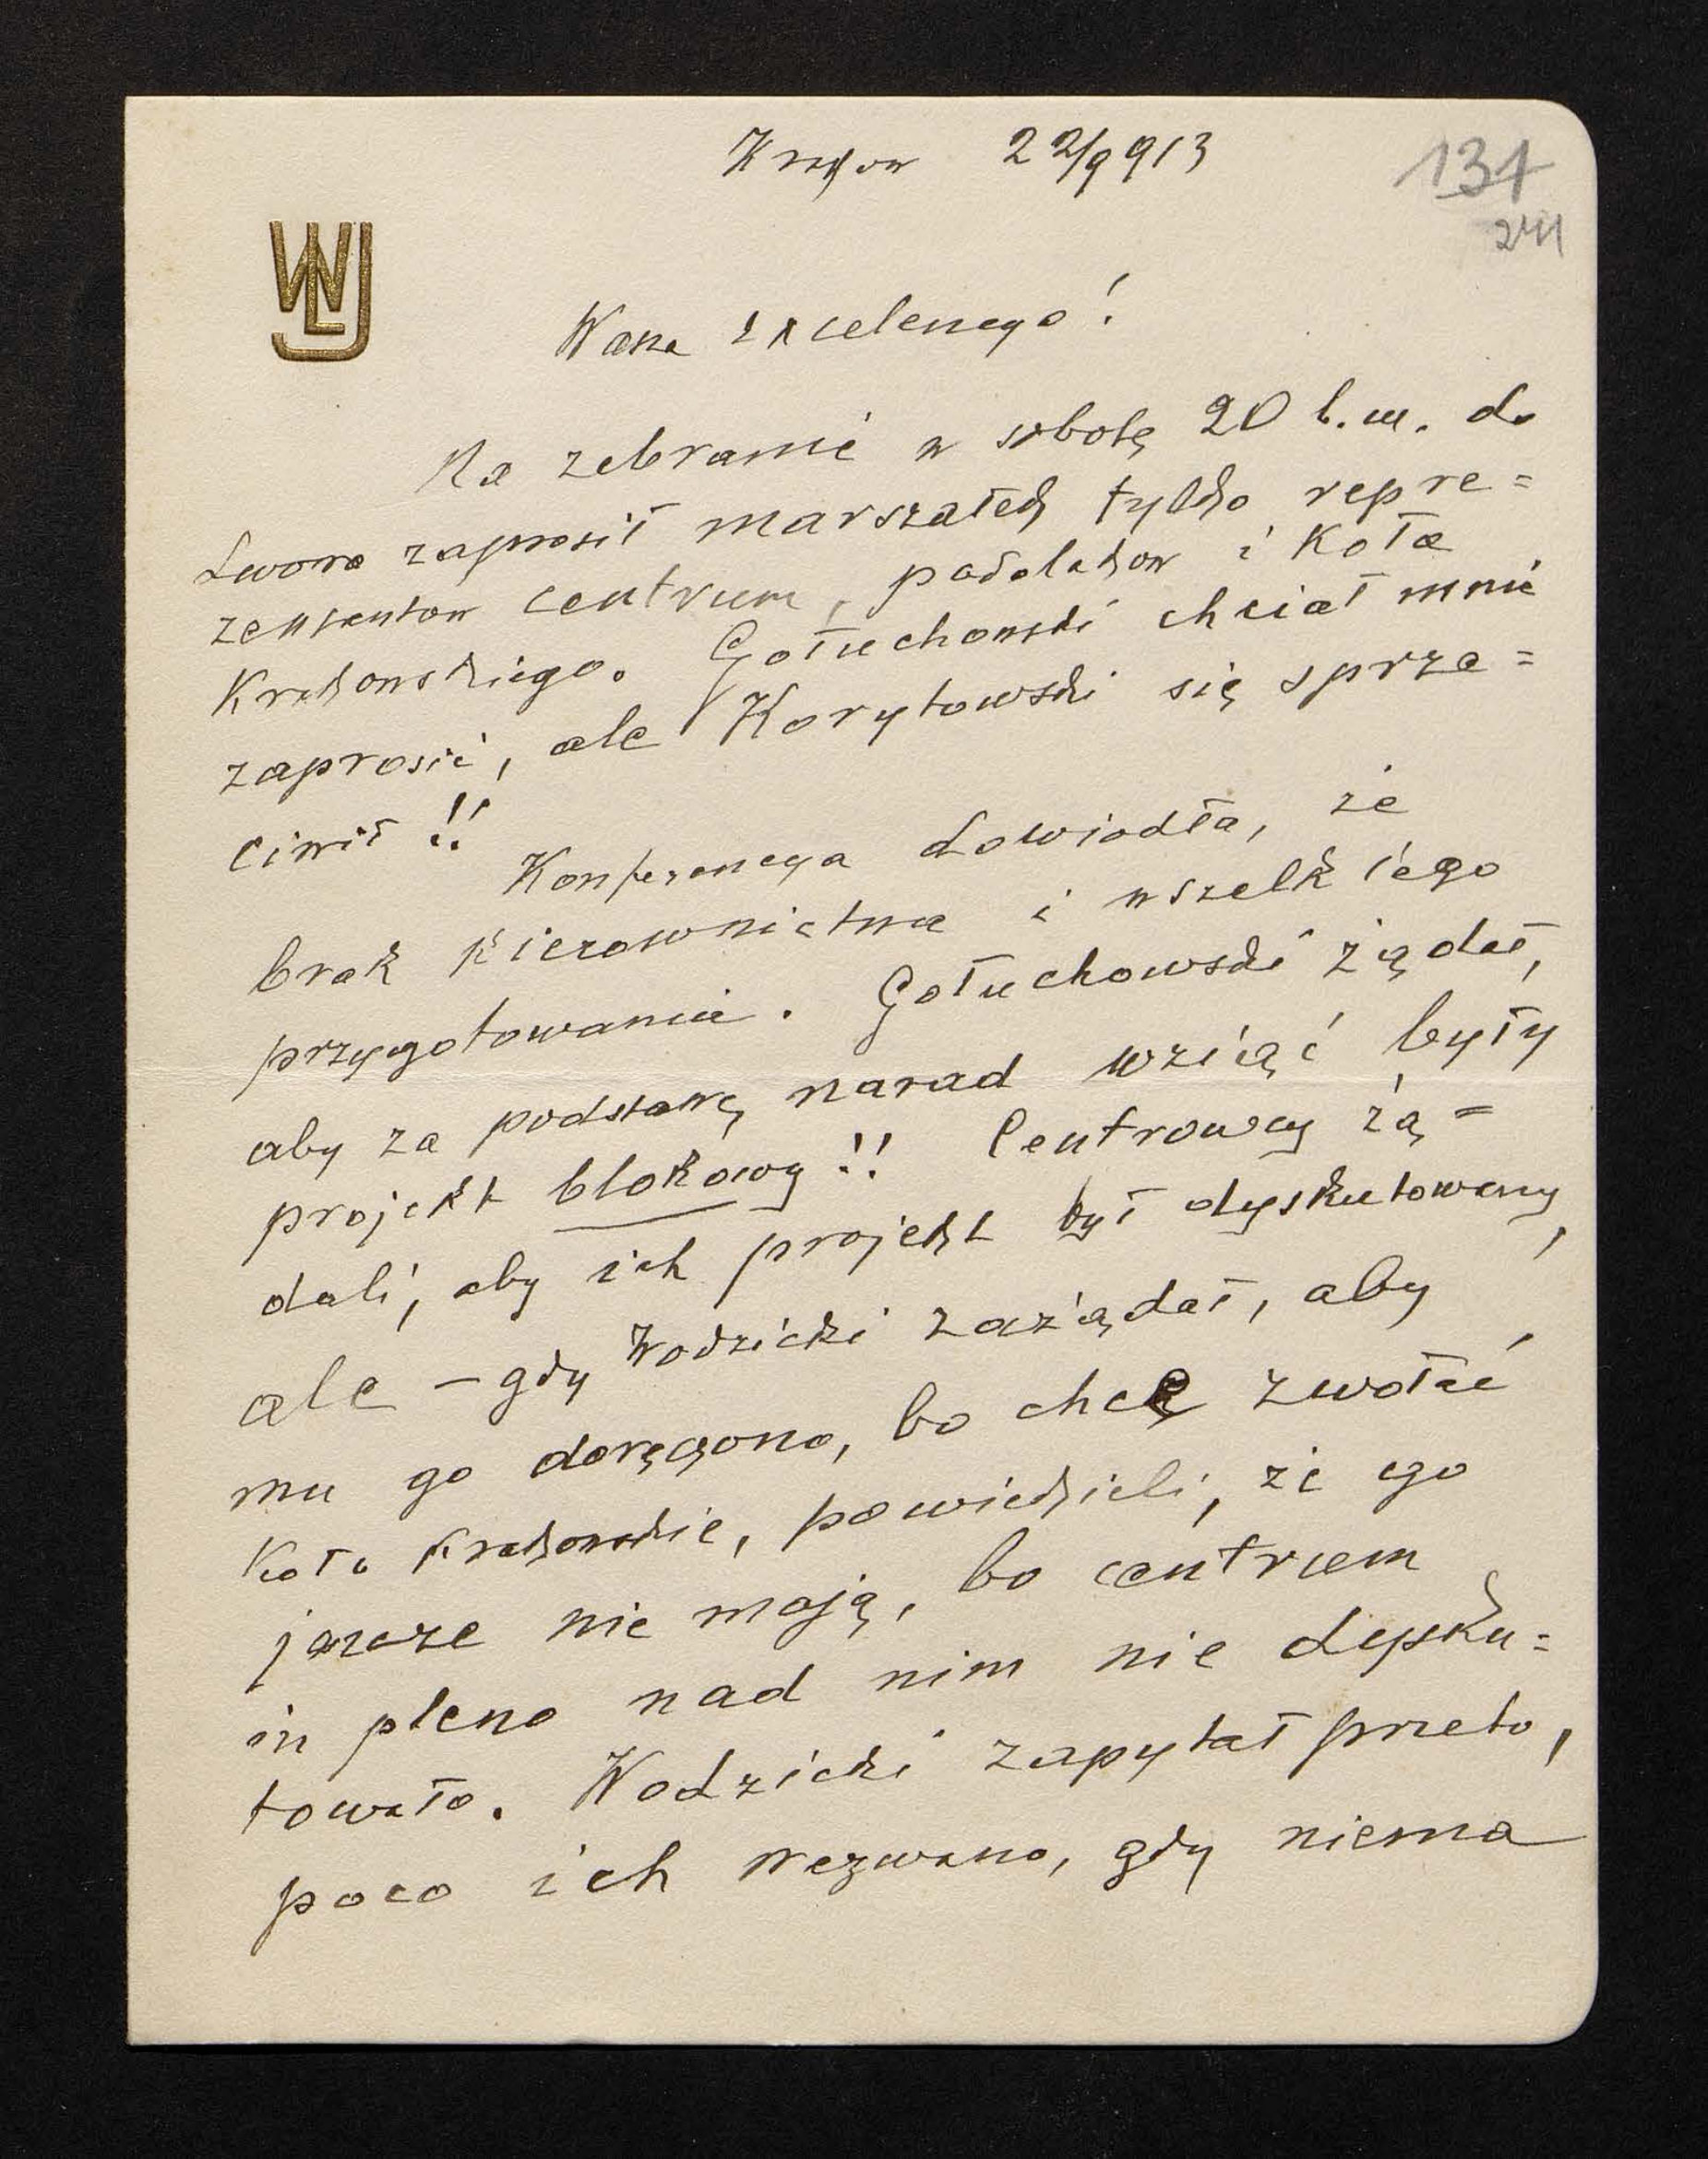 Kraków 22/9 913
131
241
WLJ
Wasza Excelencyo!
Na zebranie w sobotę 20 b.m. do
Lwowa zaprosił marszałek tylko repre=
zentantow centrum, podolakow i Koła
Krakowskiego. Gołuchowski chciał mnie
zaprosić, ale Korytowski się sprze=
ciwił!!
Konferencya dowiodła, że
brak kierownictwa i wszelkiego
przygotowania. Gołuchowski żądał,
aby za podstawę narad wziąć były
projekt blokowy!! Centrowcy żą=
dali, aby ich projekt był dyskutowany,
ale – gdy Wodzicki zażądał, aby
mu go doręczono, bo chce zwołać
Koło Krakowskie, powiedzieli, że ego
jeszcze nie mają, bo centrum
in pleno nad nim nie dysku=
towało. Wodzicki zapytał przeto,
poco ich wezwano, gdy niema